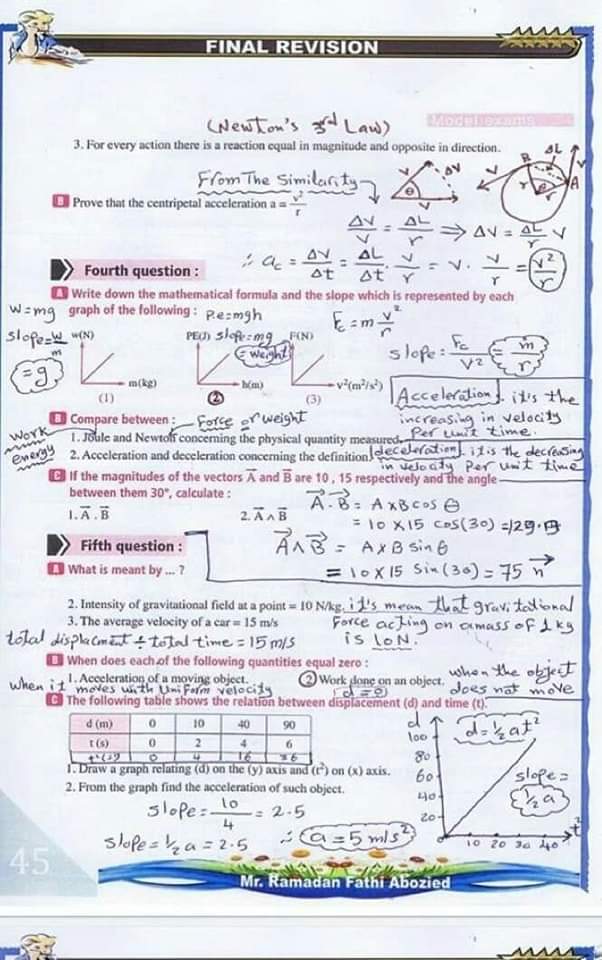 FINAL REVISION
Model exams
(Newton's 3rd Law)
3. For every action there is a reaction equal in magnitude and opposite in direction.
From The Similarity
B Prove that the centripetal acceleration a = v²/r
ΔV/V = ΔL/r ⇒ ΔV = ΔL/r V
∴ ac = ΔV/Δt = ΔL/Δt · V/r = V · V/r = V²/r
Fourth question :
A Write down the mathematical formula and the slope which is represented by each
graph of the following :
W = mg
P.e = mgh
Fc = m v²/r
slope = W/m = g
slope = mg = weight
slope = Fc/V² = m/r
w(N) PE(J) F(N)
m(kg) h(m) v²(m²/s²)
(1) (2) (3)
B Compare between :
Force or weight
Work energy
1. Joule and Newton concerning the physical quantity measured.
2. Acceleration and deceleration concerning the definition.
Acceleration, it's the
increasing in velocity
Per unit time.
deceleration it is the decreasing
in velocity Per unit time
C If the magnitudes of the vectors A and B are 10 , 15 respectively and the angle
between them 30°, calculate :
1. A . B 2. A ∧ B
A · B = A x B cos θ
= 10 x 15 cos(30) = 129.9
A ∧ B = A x B sin θ
= 10 x 15 Sin(30) = 75 n
Fifth question :
A What is meant by ... ?
2. Intensity of gravitational field at a point = 10 N/kg.
it's mean that gravitational
Force acting on a mass of 1 kg
is 10 N.
3. The average velocity of a car = 15 m/s
total displacment ÷ total time = 15 m/s
B When does each of the following quantities equal zero :
1. Acceleration of a moving object. 2 Work done on an object.
when it moves with Uniform velocity
(d = 0)
when the object
does not move
C The following table shows the relation between displacement (d) and time (t).
d (m) 0 10 40 90
t (s) 0 2 4 6
t² (s)² 0 4 16 36
1. Draw a graph relating (d) on the (y) axis and (t²) on (x) axis.
2. From the graph find the acceleration of such object.
slope = 10/4 = 2.5
slope = ½ a = 2.5 ∴ a = 5 m/s²
d
100
80
60
40
20
0 10 20 30 40 t²
d = ½ at²
slope =
½ a
45
Mr. Ramadan Fathi Abozied